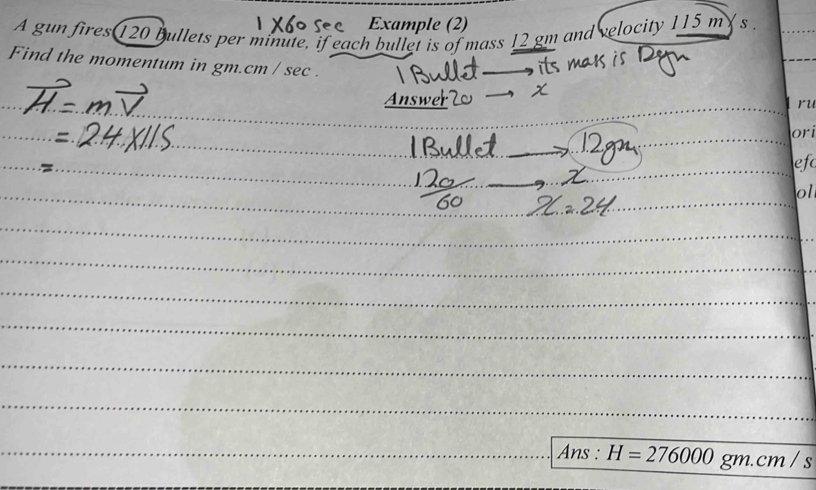 1 X 60 sec Example (2)
A gun fires 120 bullets per minute, if each bullet is of mass 12 gm and velocity 115 m/s.
Find the momentum in gm.cm / sec.
1 Bullet → its mass is 12 gm
Answer 120 → x
H = m V
= 24 X 115
=
1 Bullet → 12 gm
120/60 → x
x = 24
ru
ori
efo
oll
Ans : H = 276000 gm.cm / s